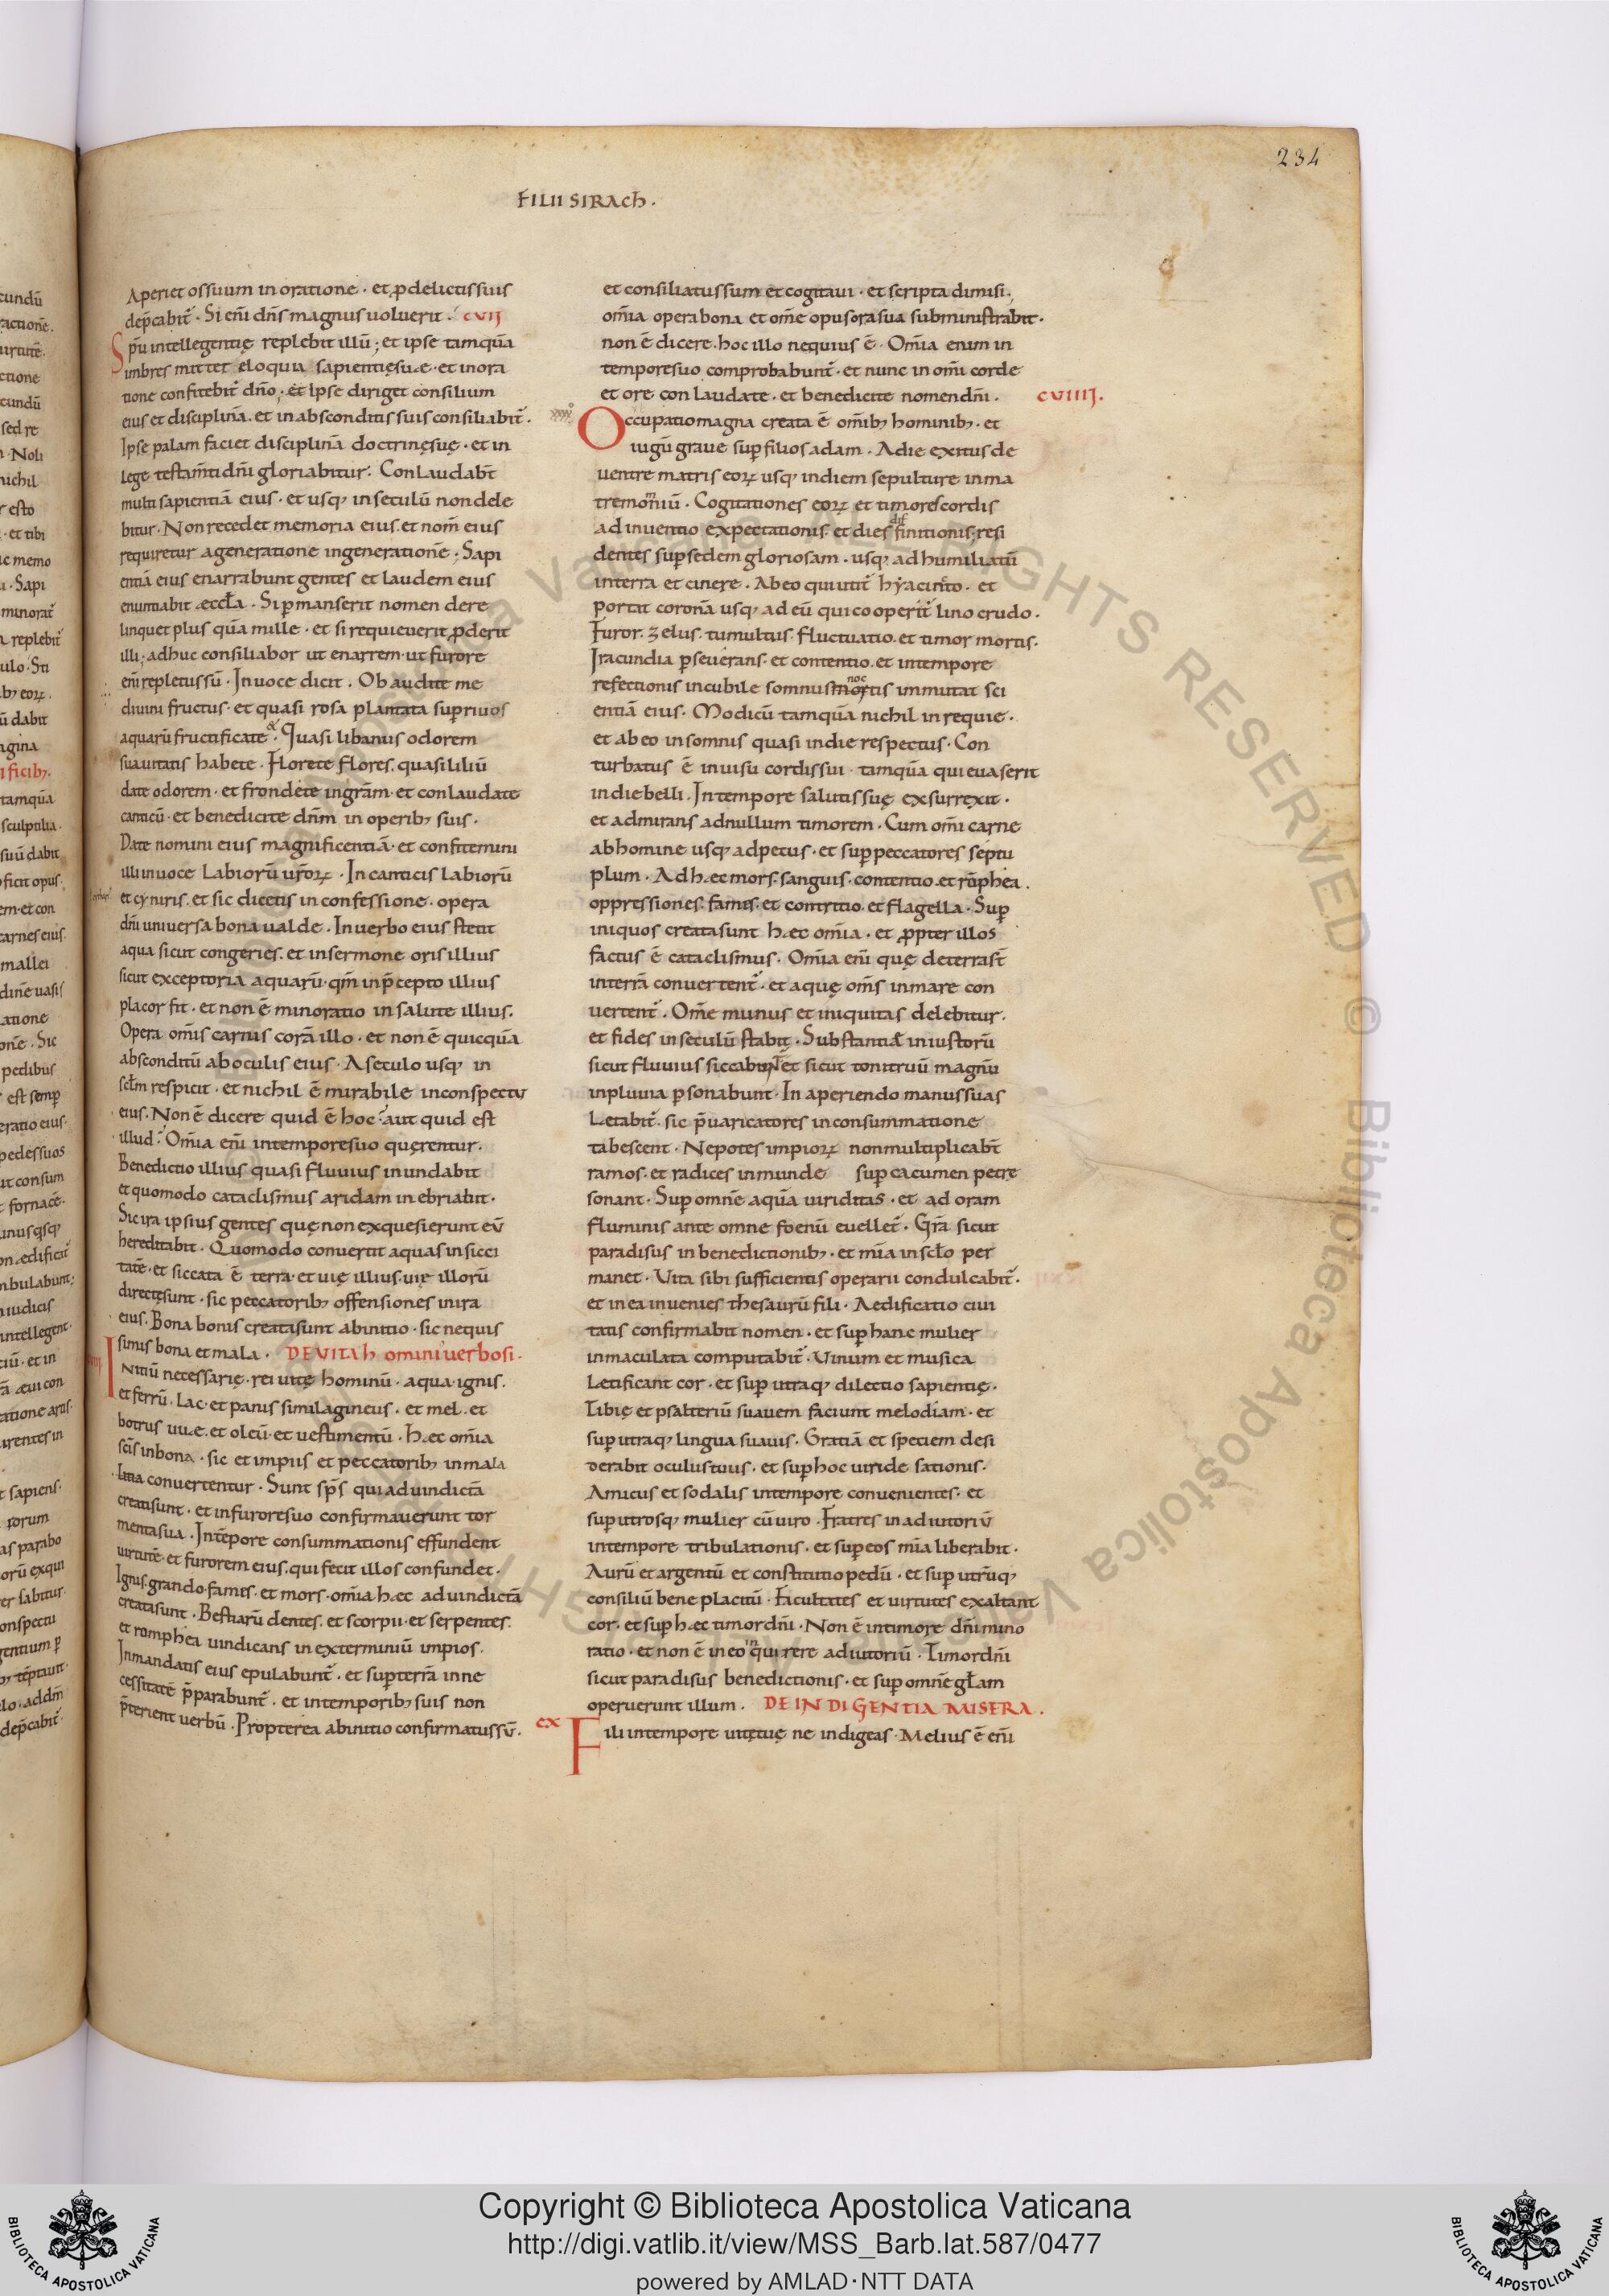 234
FILII SIRACH.
Aperiet os suum in oratione · et ꝓ delictis suis
dep̄cabit᷑ · Si eni̅ dn̅s magnus uoluerit · CVII
Sp̅u intellegentię replebit illu̅; et ipse tamqua̅
imbres mittet eloquia sapientię suae · et in ora
tione confitebit᷑ dn̅o · et ipse diriget consilium
eius et disciplina̅ · et in absconditis suis consiliabit᷑ ·
Ipse palam faciet disciplina̅ doctrinę suę · et in
lege testam̅ti dn̅i gloriabitur · Conlaudabt̅
multi sapientia̅ eius · et usq; in seculu̅ non dele
bitur · Non recedet memoria eius · et nom̅ eius
requiretur a generatione in generatione̅ · Sapi
entia̅ eius enarrabunt gentes et laudem eius
enuntiabit aeccl̅a · Si ꝑmanserit nomen dere
linquet plus qua̅ mille · et si requieuerit ꝓderit
illi; adhuc consiliabor ut enarrem · ut furore
eni̅ repletus su̅ · In uoce dicit · Obaudite me
diuini fructus · et quasi rosa plantata sup̱ riuos
aquaru̅ fructificate · Quasi libanus odorem
suauitatis habete · Florete flores · quasi liliu̅
date odorem · et frondete in gra̅m · et conlaudate
canticu̅ · et benedicite dn̅m in operib; suis ·
Date nomini eius magnificentia̅ · et confitemini
illi in uoce labioru̅ ur̅oꝝ · In canticis labioru̅
et cyniris · et sic dicetis in confessione · opera
dn̅i uniuersa bona ualde · In uerbo eius stetit
aqua sicut congeries · et in sermone oris illius
sicut exceptoria aquaru̅ · qm̅ in p̄cepto illius
placor fit · et non e̅ minoratio in salute illius ·
Opera om̅is carnis cora̅ illo · et non e̅ quicqua̅
absconditu̅ ab oculis eius · A seculo usq; in
scl̅m respicit · et nichil e̅ mirabile in conspectu
eius · Non e̅ dicere quid e̅ hoc · aut quid est
illud · Om̅ia eni̅ in tempore suo querentur ·
Benedictio illius quasi fluuius inundabit
et quomodo cataclismus aridam inebriabit ·
Sic ira ipsius gentes quę non exquesierunt eu̅
hereditabit · Quomodo conuertit aquas in sicci
tate̅ · et siccata e̅ terra · et uię illius · uię illoru̅
directę sunt · sic peccatorib; offensiones in ira
eius · Bona bonis creata sunt ab initio · sic nequis
simis bona et mala · DE VITA hominiuerbosi ·
Initiu̅ necessarię · rei uitę hominu̅ · aqua · ignis ·
et ferru̅ · lac · et panis similagineus · et mel · et
botrus uuae · et oleu̅ · et uestimentu̅ · haec om̅ia
sc̅is in bona · sic et impiis et peccatorib; in mala
conuertentur · Sunt sp̅s qui ad uindicta̅
creati sunt · et in furore suo confirmauerunt tor
menta sua · In te̅pore consummationis effundent
uirtute̅ · et furorem eius · qui fecit illos confundet ·
Ignis · grando · famis · et mors · om̅ia haec ad uindicta̅
creata sunt · Bestiaru̅ dentes · et scorpii · et serpentes ·
et romphea uindicans in exterminiu̅ impios ·
In mandatis eius epulabunt᷑ · et sup̱ terra̅ in ne
cessitate̅ p̄parabunt᷑ · et in temporib; suis non
p̄terient uerbu̅ · Propterea ab initio confirmatus su̅ ·
et consiliatus sum et cogitaui · et scripta dimisi ·
om̅ia opera bona et om̅e opus ora sua subministrabit ·
non e̅ dicere · hoc illo nequius e̅ · Om̅ia enim in
tempore suo comprobabunt᷑ · et nunc in om̅i corde
et ore conlaudate · et benedicite nomen dn̅i · CVIIII.
Occupatio magna creata e̅ om̅ib; hominib; · et
iugu̅ graue sup̱ filios adam · A die exitus de
uentre matris eoꝝ usq; in diem sepulture in ma
trem om̅iu̅ · Cogitationes eoꝝ et timores cordis
adinuentio expectationis · et dies finitionis · resi
dentes sup̱ sedem gloriosam · usq; ad humiliatu̅
in terra et cinere · Ab eo qui utit᷑ hyacinto · et
portat corona̅ usq; ad eu̅ qui cooperit᷑ lino crudo ·
Furor · zelus · tumultus · fluctuatio · et timor mortis ·
Iracundia ꝑseuerans · et contentio · et in tempore
refectionis in cubile somnus noctis immutat sci
entia̅ eius · Modicu̅ tamqua̅ nichil in requie ·
et ab eo in somnis quasi in die respectus · Con
turbatus e̅ in uisu cordis sui · tamqua̅ qui euaserit
in die belli · In tempore salutis suę exsurrexit ·
et admirans ad nullum timorem · Cum om̅i carne
ab homine usq; ad petus · et sup̱ peccatores septu
plum · Ad haec mors · sanguis · contentio · et ru̅phea ·
oppressiones · famis · et contritio · et flagella · Sup̱
iniquos creata sunt haec om̅ia · et ꝓpter illos
factus e̅ cataclismus · Om̅ia eni̅ quę de terra st̅
in terra̅ conuertent᷑ · et aquę om̅s in mare con
uertent᷑ · Om̅e munus et iniquitas delebitur ·
et fides in seculu̅ stabit · Substantia̅ iniustoru̅
sicut fluuius siccabit᷑ et sicut tonitruu̅ magnu̅
in pluuia ꝑsonabunt · In aperiendo manus suas
laetabit᷑ · sic p̄uaricatores in consummatione
tabescent · Nepotes impioꝝ non multiplicabt̅
ramos · et radices inmunde sup̱ cacumen petre
sonant · Sup̱ omne̅ aqua̅ uiriditas · et ad oram
fluminis ante omne foenu̅ euellet᷑ · Gra̅ sicut
paradisus in benedictionib; · et mi̅a in scl̅o per
manet · Vita sibi sufficientis operarii condulcabit᷑ ·
et in ea inuenies thesauru̅ fili · Aedificatio ciui
tatis confirmabit nomen · et sup̱ hanc mulier
inmaculata computabit᷑ · Vinum et musica
laetificant cor · et sup̱ utraq; dilectio sapientię ·
Tibię et psalteriu̅ suauem faciunt melodiam · et
sup̱ utraq; lingua suauis · Gratia̅ et speciem desi
derabit oculus tuus · et sup̱ hoc uiride sationis ·
Amicus et sodalis in tempore conuenientes · et
sup̱ utrosq; mulier cu̅ uiro · Fratres in adiutoriu̅
in tempore tribulationis · et sup̱ eos mi̅a liberabit ·
Auru̅ et argentu̅ et constitutio pedu̅ · et sup̱ utru̅q;
consiliu̅ bene placitu̅ · Facultates et uirtutes exaltant
cor · et sup̱ haec timor dn̅i · Non e̅ in timore dn̅i mino
ratio · et non e̅ in eo inquirere adiutoriu̅ · Timor dn̅i
sicut paradisus benedictionis · et sup̱ omne̅ gl̅am
operuerunt illum · DE INDIGENTIA MISERA ·
CX Fili in tempore uitę tuę ne indigeas · Melius e̅ eni̅
Copyright © Biblioteca Apostolica Vaticana
http://digi.vatlib.it/view/MSS_Barb.lat.587/0477
powered by AMLAD·NTT DATA